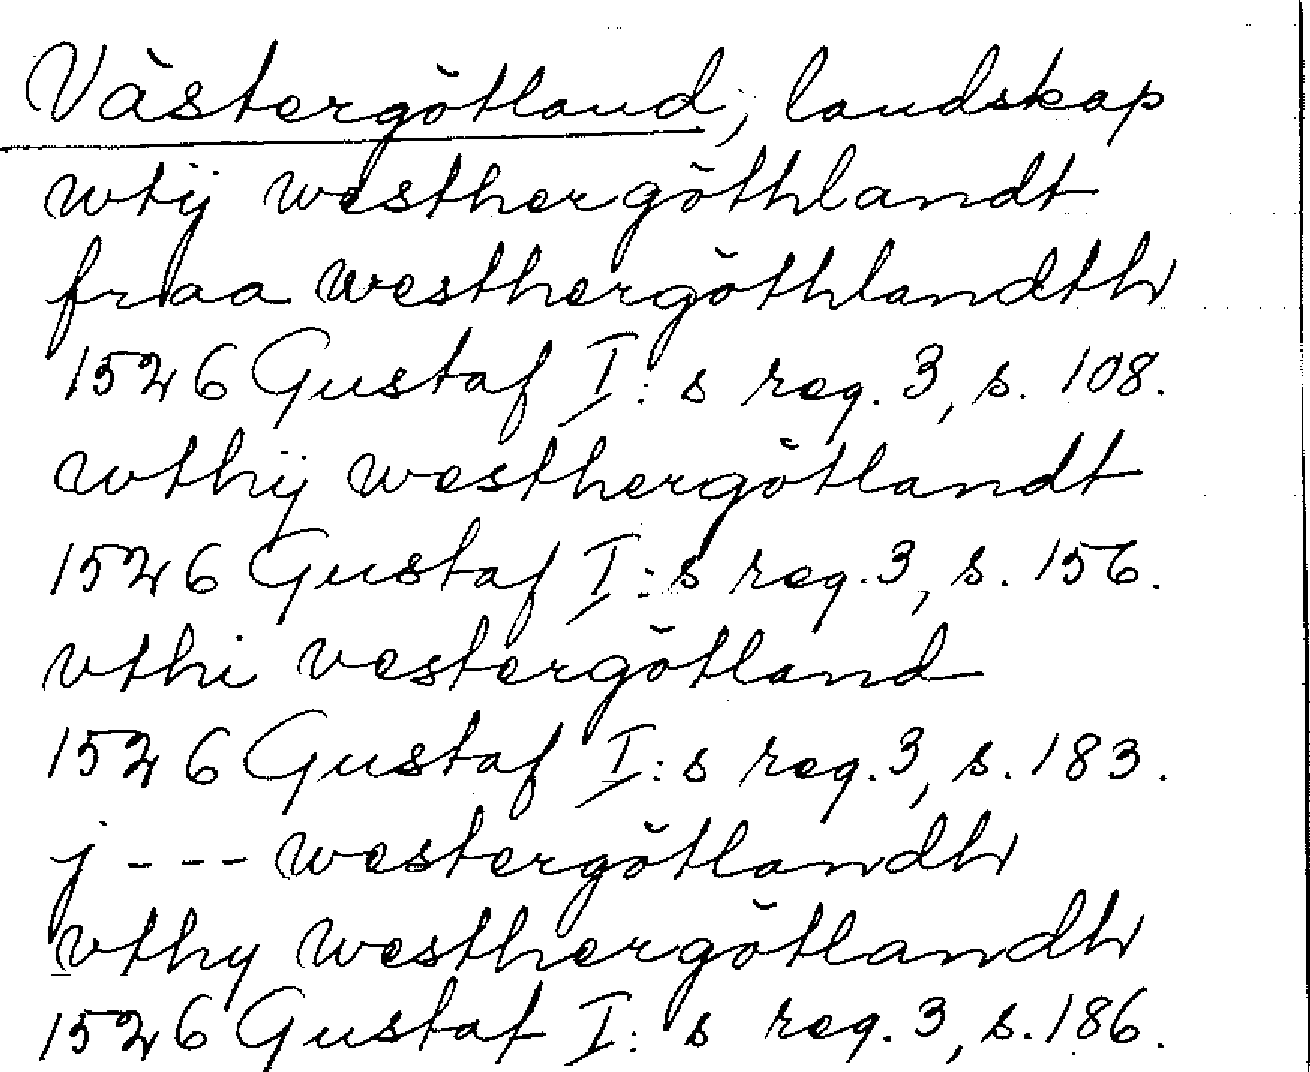 Västergötland, landskap
wtij westhergöthlandt
fraa westhergöthlandth
1526 Gustaf I:s reg. 3, s. 108.
wthij westhergötlandt
1526 Gustaf I:s reg. 3, s. 156.
vthi vestergötland
1526 Gustaf I:s reg. 3, s. 183.
j --- westergötlandh
vthy westhergötlandh
1526 Gustaf I:s reg. 3, s. 186.